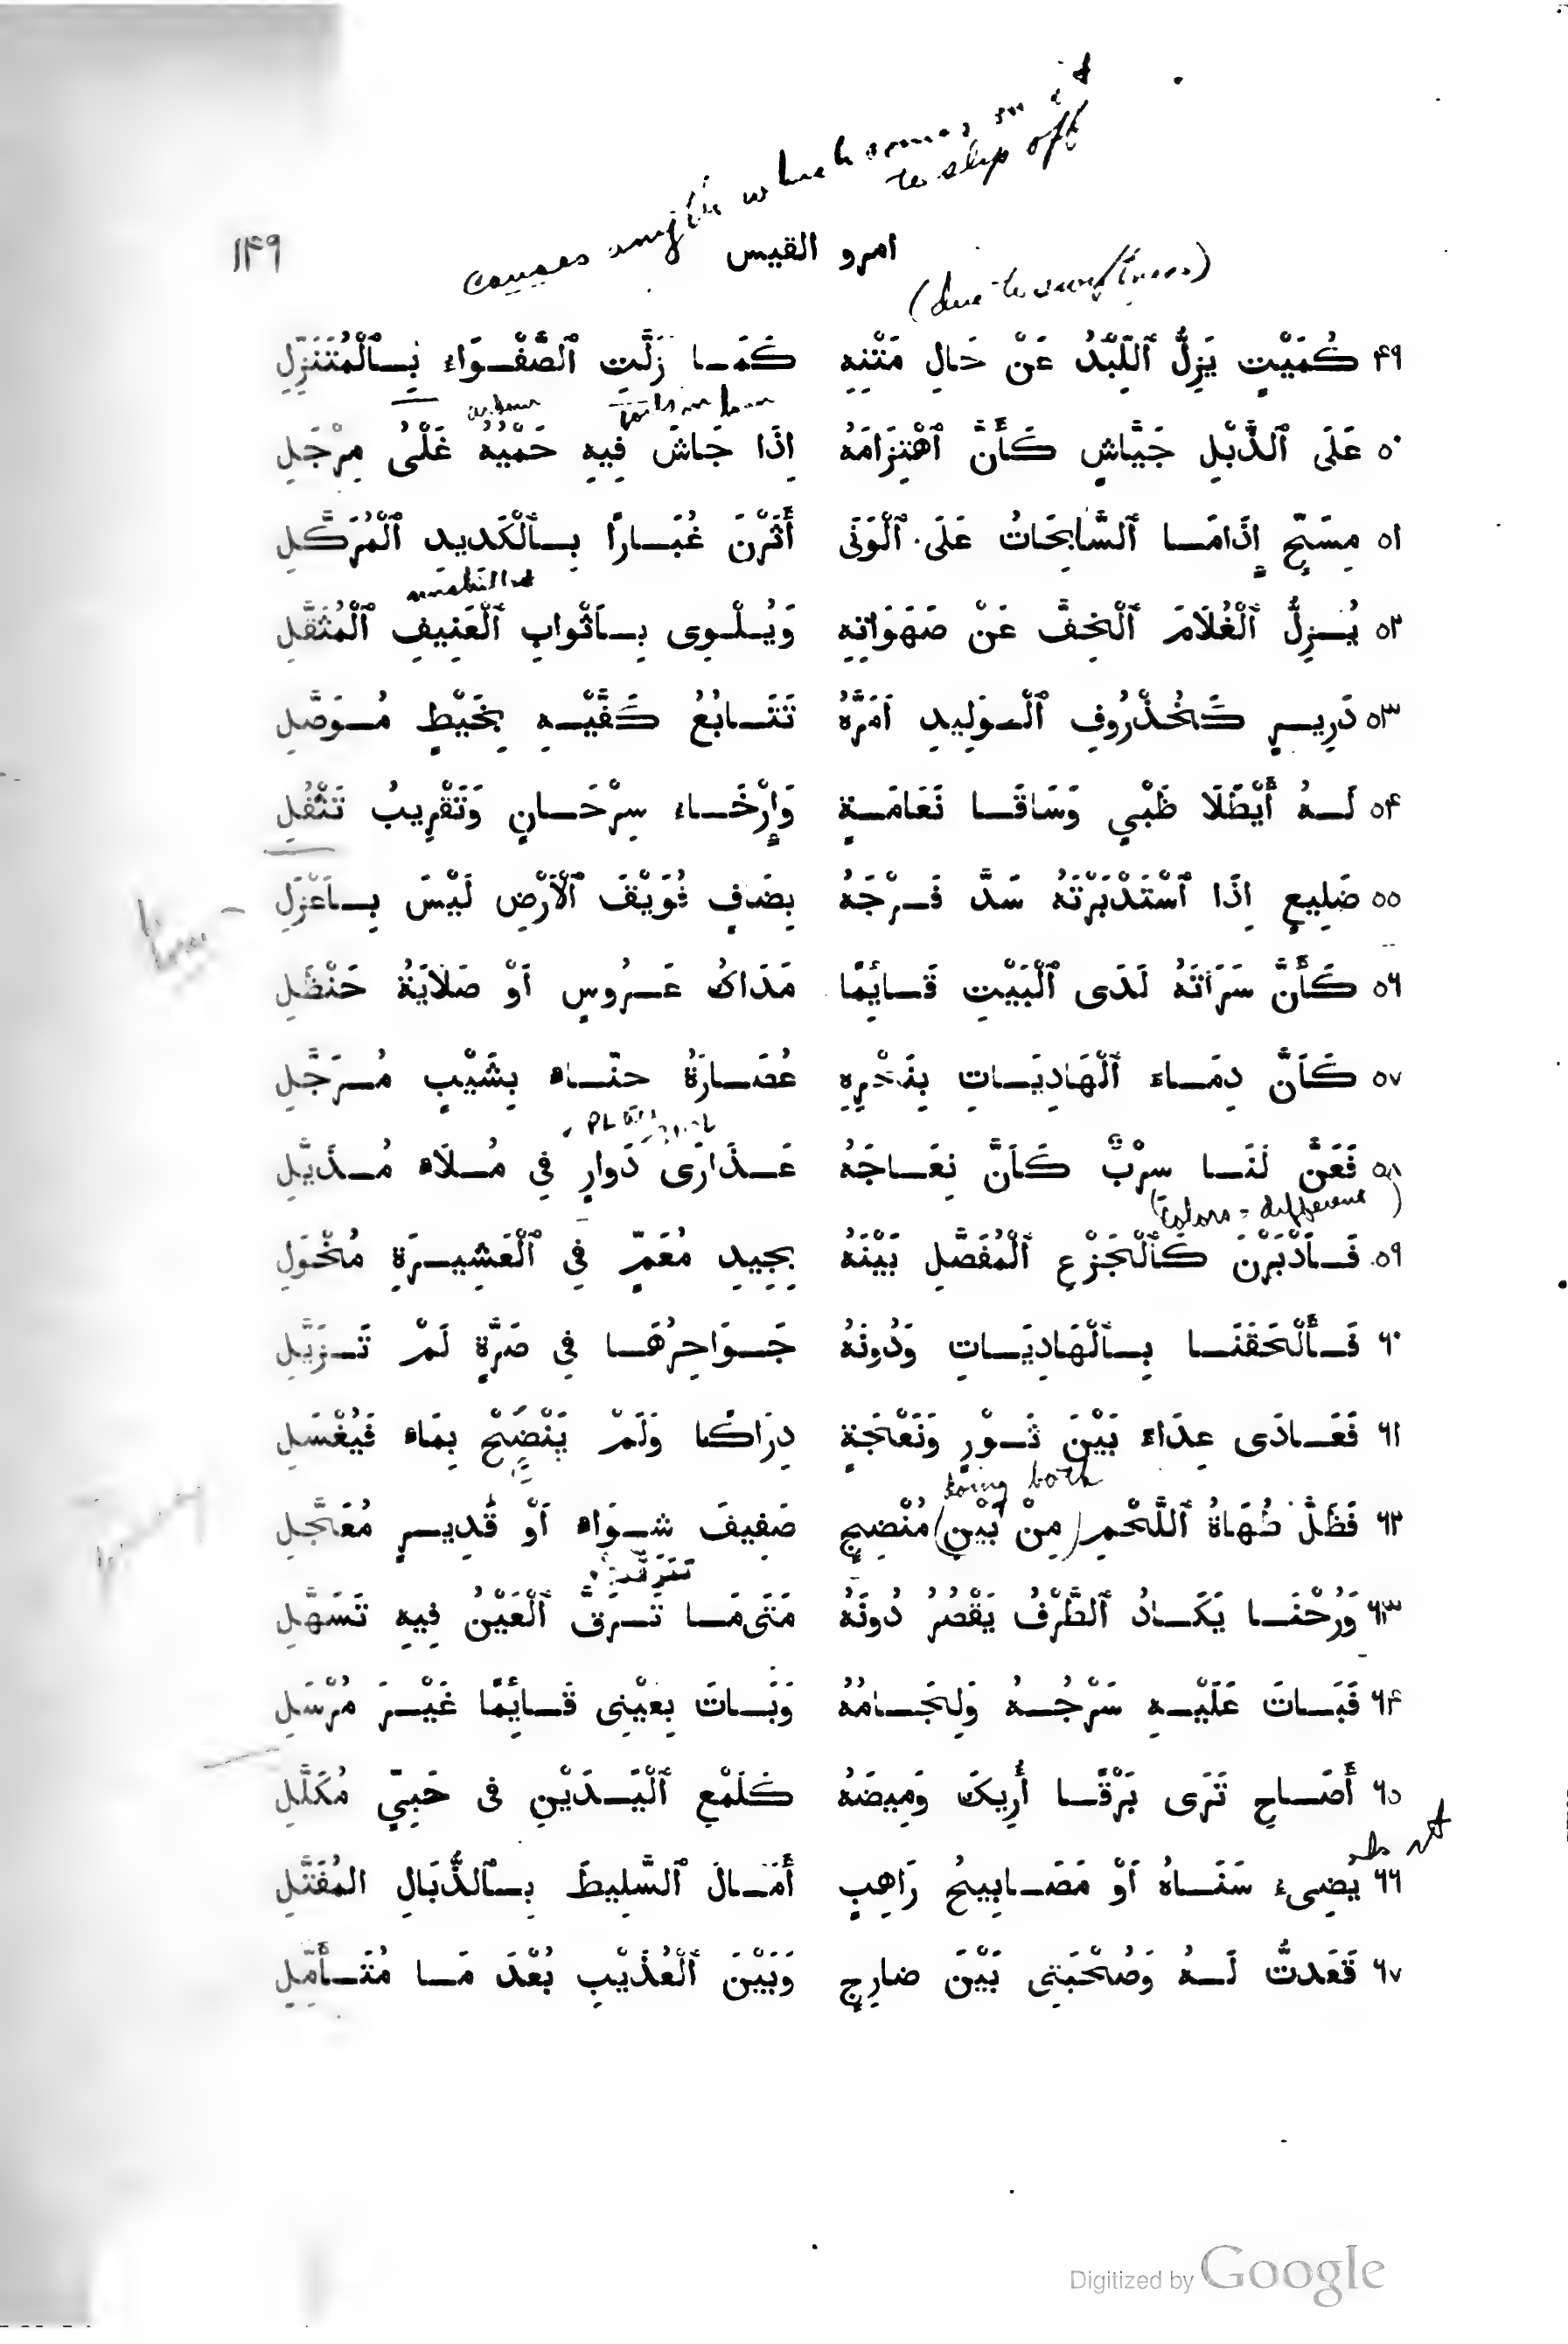 causes anything which comes on it
to slip off
١٤٩
امرو القيس
(due to smoothness)
٤٩ كُمَيْتٍ يَزِلُّ ٱللِّبْدُ عَنْ حَالِ مَتْنِهِ كَمَـا زَلَّتِ ٱلصَّفْـوَاءُ بِـٱلْمُتَنَزِّلِ
٥٠ عَلَى ٱلذَّبْلِ جَيَّاشٍ كَأَنَّ ٱهْتِزَامَهُ إِذَا جَاشَ فِيهِ حَمْيُهُ غَلْىُ مِرْجَلِ
٥١ مِسَحٍّ إِذَامَـا ٱلسَّابِحَاتُ عَلَى ٱلْوَنَى أَثَرْنَ غُبَـارًا بِـٱلْكَدِيدِ ٱلْمُرَكَّلِ
٥٢ يُـزِلُّ ٱلْغُلَامَ ٱلْخِفَّ عَنْ صَهَوَاتِهِ وَيُـلْـوِى بِـأَثْوابِ ٱلْعَنِيفِ ٱلْمُثَقَّلِ
٥٣ دَرِيـرٍ كَخُذْرُوفِ ٱلْـوَلِيدِ أَمَرَّهُ تَتَـابُعُ كَفَّيْـهِ بِخَيْطٍ مُـوَصَّلِ
٥٤ لَـهُ أَيْطَلَا ظَبْىٍ وَسَاقَـا نَعَامَـةٍ وَإِرْخَـاءُ سِرْحَـانٍ وَتَقْرِيبُ تَتْفُلِ
٥٥ ضَلِيعٍ إِذَا ٱسْتَدْبَرْتَهُ سَدَّ فَـرْجَهُ بِضَافٍ فُوَيْقَ ٱلْأَرْضِ لَيْسَ بِـأَعْزَلِ
٥٦ كَأَنَّ سَرَاتَهُ لَدَى ٱلْبَيْتِ قَـائِمًا مَدَاكُ عَـرُوسٍ أَوْ صَلَايَةُ حَنْظَلِ
٥٧ كَأَنَّ دِمَـاءَ ٱلْهَادِيَـاتِ بِنَحْرِهِ عُصَـارَةُ حنَّـاءٍ بِشَيْبٍ مُـرَجَّلِ
٥٨ فَعَنَّ لَنَـا سِرْبٌ كَأَنَّ نِعَـاجَهُ عَـذَارَى دَوارٍ فِي مُـلَاءٍ مُـذَيَّلِ
(colors = different)
٥٩ فَـأَدْبَرْنَ كَٱلْجَزْعِ ٱلْمُفَصَّلِ بَيْنَهُ بِجِيدِ مُعَمٍّ فِي ٱلْعَشِيـرَةِ مُخْوَلِ
٦٠ فَـأَلْحَقَنَـا بِـٱلْهَادِيَـاتِ وَدُونَهُ جَـوَاحِرُهَـا فِي صَرَّةٍ لَمْ تَـزَيَّلِ
٦١ فَعَـادَى عِدَاءً بَيْنَ ثَـوْرٍ وَنَعْجَةٍ دِرَاكًا وَلَمْ يَنْضَحْ بِمَاءٍ فَيُغْسَلِ
being both
٦٢ فَظَلَّ طُهَاةُ ٱللَّحْمِ (مِنْ بَيْنِ) مُنْضِجٍ صَفِيفَ شِـوَاءٍ أَوْ قَدِيـرٍ مُعَجَّلِ
٦٣ وَرُحْنَـا يَكَـادُ ٱلطَّرْفُ يَقْصُرُ دُونَهُ مَتَىمَـا تَـرَقَّ ٱلْعَيْنُ فِيهِ تَسَهَّلِ
٦٤ فَبَـاتَ عَلَيْـهِ سَرْجُـهُ وَلِجَـامُهُ وَبَـاتَ بِعَيْنِى قَـائِمًا غَيْـرَ مُرْسَلِ
٦٥ أَصَـاحِ تَرَى بَرْقًـا أُرِيكَ وَمِيضَهُ كَلَمْعِ ٱلْيَـدَيْنِ فى حَبِيٍّ مُكَلَّلِ
٦٦ يُضِىءُ سَنَـاهُ أَوْ مَصَـابِيحُ رَاهِبٍ أَمَـالَ ٱلسَّلِيطَ بِـٱلذُّبَالِ المُفَتَّلِ
٦٧ قَعَدتُّ لَـهُ وَصُحْبَتِى بَيْنَ ضارِجٍ وَبَيْنَ ٱلْعُذَيْبِ بُعْدَ مَـا مُتَـأَمَّلِ
Digitized by Google